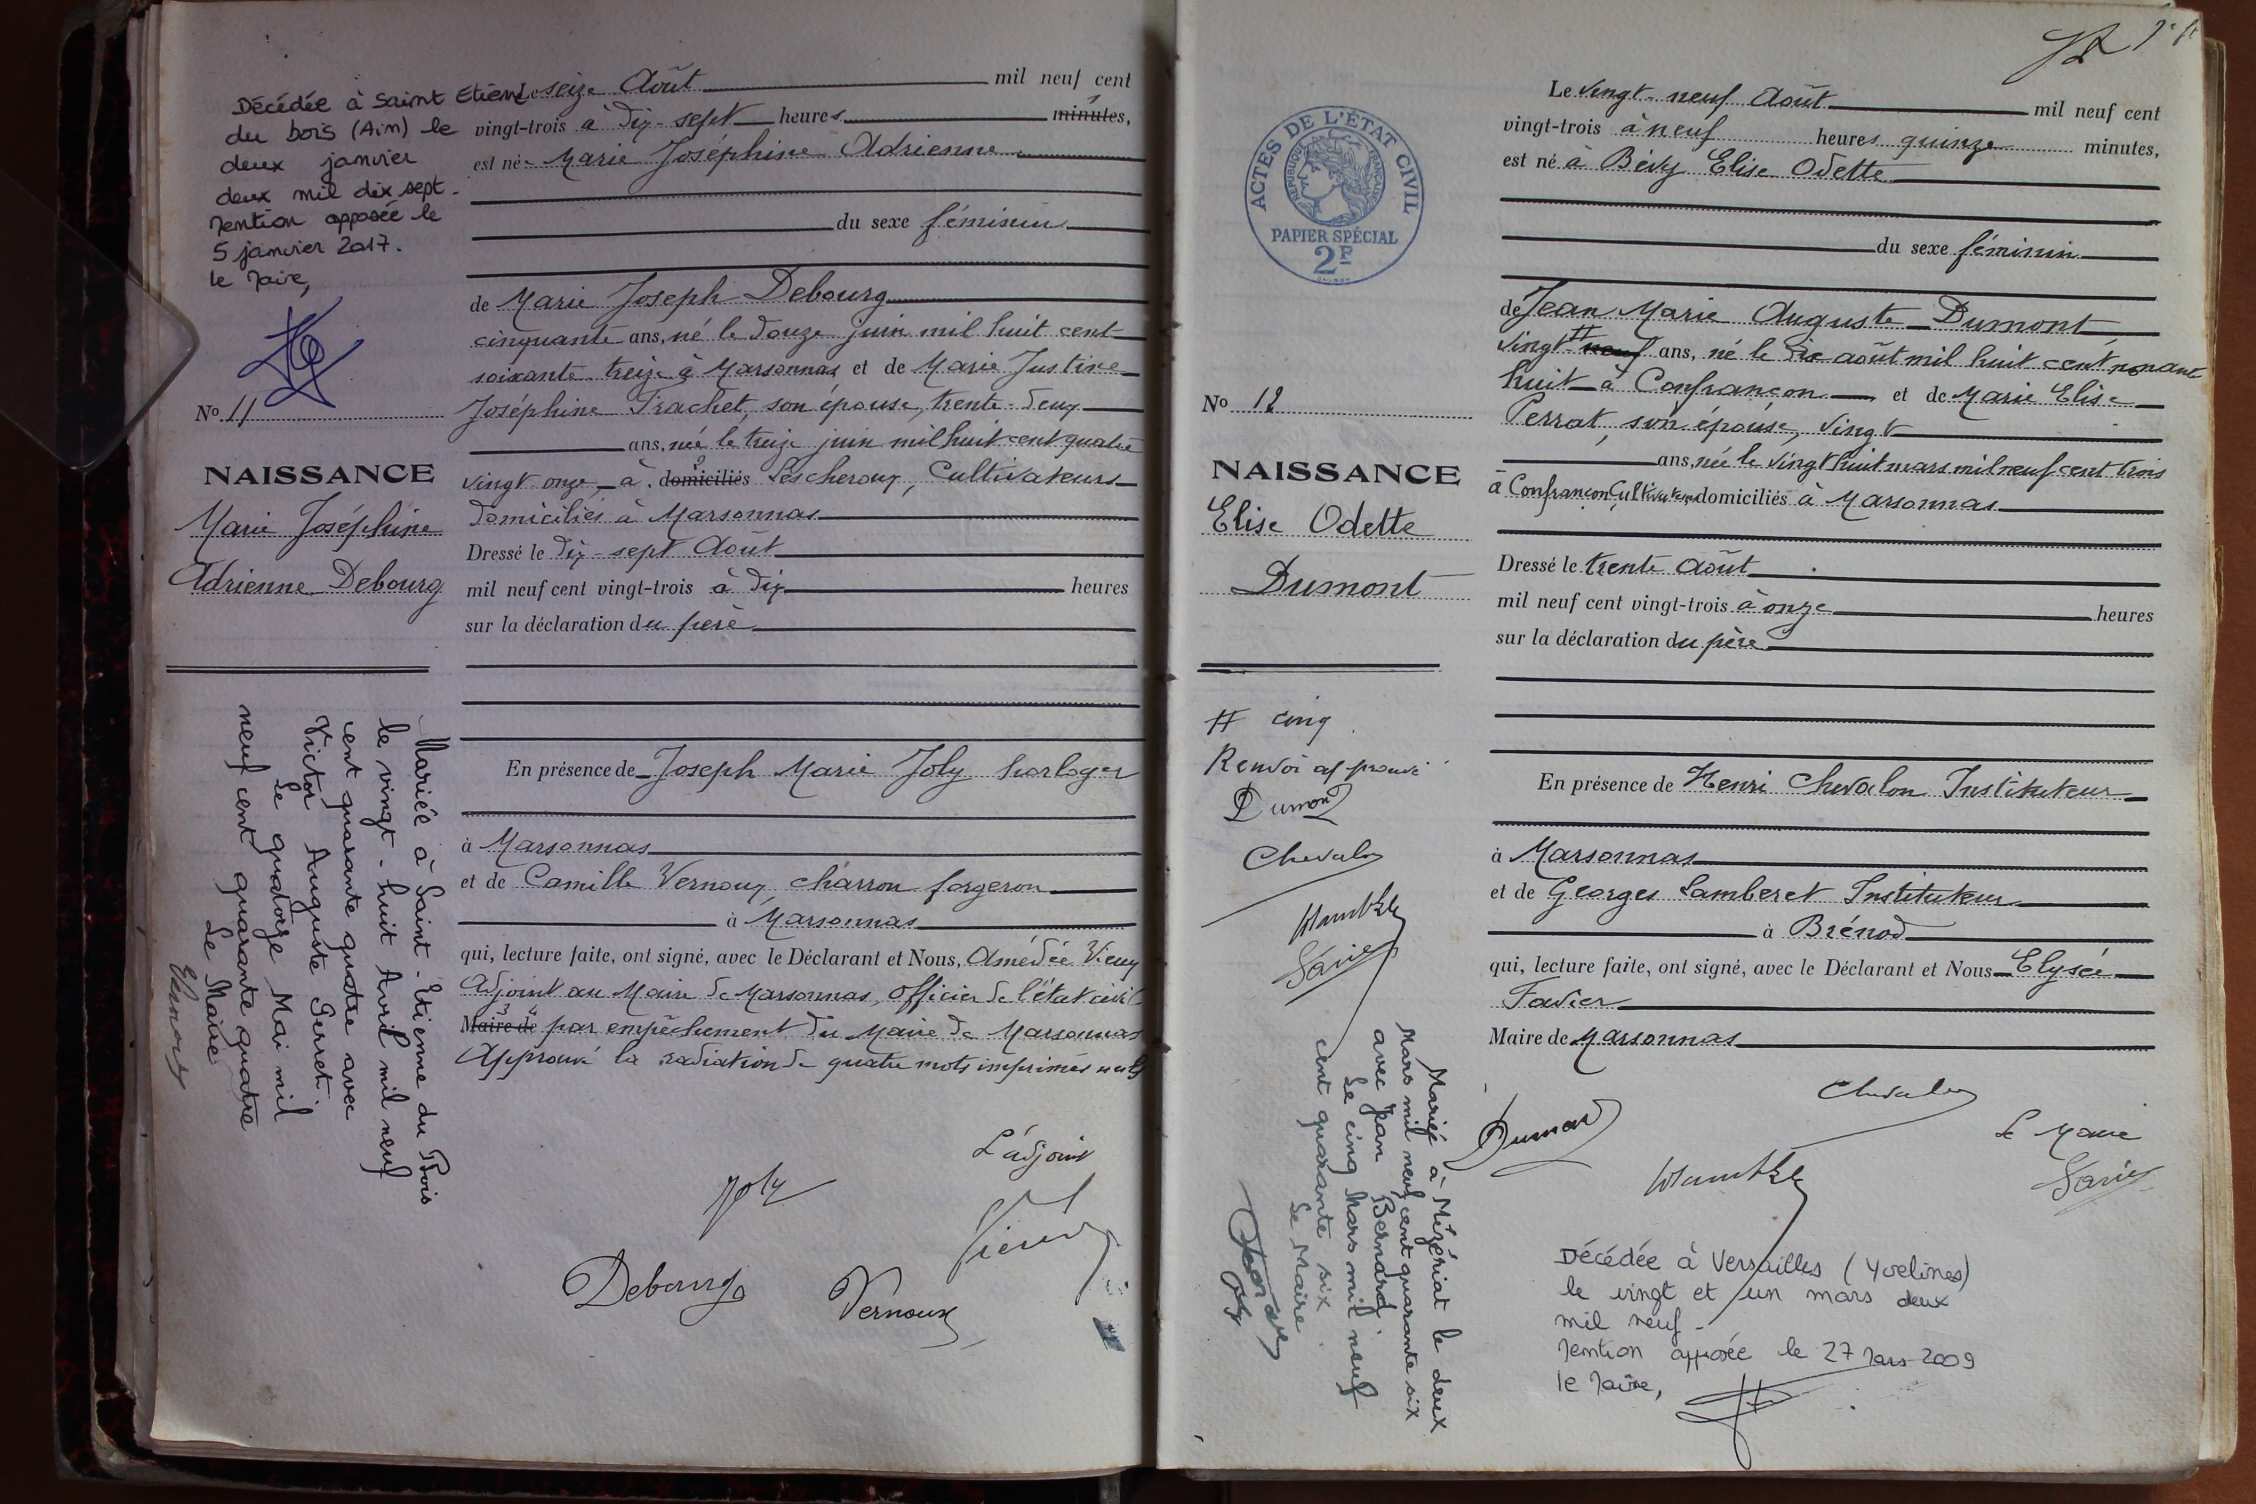 Décédée à Saint Etienne
du bois (Ain) le
deux janvier
deux mil dix sept.
Mention apposée le
5 janvier 2017.
le Maire,
No 11
NAISSANCE
Marie Joséphine
Adrienne Debourg
Mariée à Saint-Etienne du Bois
le vingt-huit Avril mil neuf
cent quarante quatre avec
Victor Auguste Perret.
Le quatorze Mai mil
neuf cent quarante quatre
Le Maire
Le seize Août mil neuf cent
vingt-trois à dix-sept heures minutes,
est né Marie Joséphine Adrienne
du sexe féminin
de Marie Joseph Debourg
cinquante ans, né le douze juin mil huit cent
soixante treize à Marsonnas et de Marie Justine
Joséphine Prachet, son épouse, trente-deux
ans, née le treize juin mil huit cent quatre
vingt onze à domiciliés Lescheroux, Cultivateurs
domiciliés à Marsonnas
Dressé le dix-sept Août
mil neuf cent vingt-trois à dix heures
sur la déclaration du père
En présence de Joseph Marie Joly horloger
à Marsonnas
et de Camille Vernoux charron forgeron
à Marsonnas
qui, lecture faite, ont signé, avec le Déclarant et Nous, Amédée Vieux
Adjoint au Maire de Marsonnas, officier de l'état civil
Maire de par empêchement du Maire de Marsonnas
Approuvé la radiation de quatre mots imprimés nuls
L'adjoint
Joly
Debourg
Vernoux
ACTES DE L'ÉTAT CIVIL
RÉPUBLIQUE FRANÇAISE
PAPIER SPÉCIAL
2F
No 12
NAISSANCE
Elise Odette
Dumont
# cinq
Renvoi approuvé
Dumont
Chevalon
Favier
Mariée à Mézériat le deux
Mars mil neuf cent quarante six
avec Jean Bernard.
Le cinq Mars mil neuf
cent quarante six.
Le Maire
Le vingt-neuf Août mil neuf cent
vingt-trois à neuf heures quinze minutes,
est né à Bévy Elise Odette
du sexe féminin
de Jean Marie Auguste Dumont
vingt # neuf ans, né le dix août mil huit cent nonante
huit à Confrançon et de Marie Elise
Perrat, son épouse, vingt
ans, née le vingt huit mars mil neuf cent trois
à Confrançon Cultivateurs domiciliés à Marsonnas
Dressé le trente Août
mil neuf cent vingt-trois à onze heures
sur la déclaration du père
En présence de Henri Chevalon Instituteur
à Marsonnas
et de Georges Lamberet Instituteur
à Brénod
qui, lecture faite, ont signé, avec le Déclarant et Nous Elysée
Favier
Maire de Marsonnas
Chevalon
Dumont
Le Maire
Favier
Décédée à Versailles (Yvelines)
le vingt et un mars deux
mil neuf.
Mention apposée le 27 Mars 2009
le Maire,